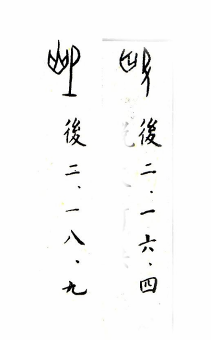 後二.一六.四
後二.一八.九